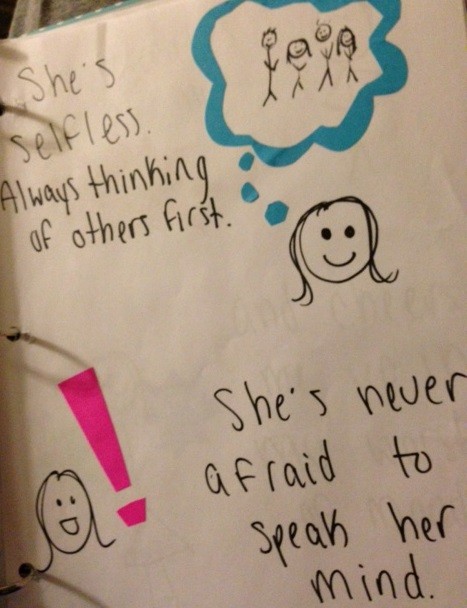 She's
selfless.
Always thinking
of others first.
!
She's never
afraid to
speak her
mind.